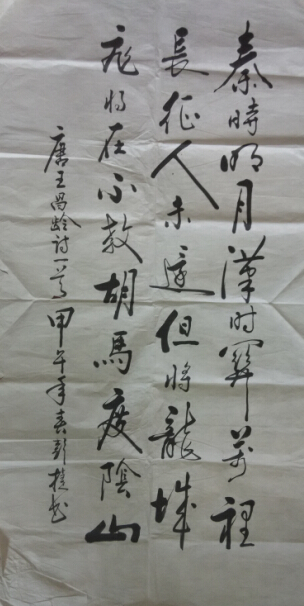 秦時明月漢时關萬裡
長征人未還但將龍城
飛将在不教胡馬度陰山
唐王昌齡詩一首甲午年春彭书